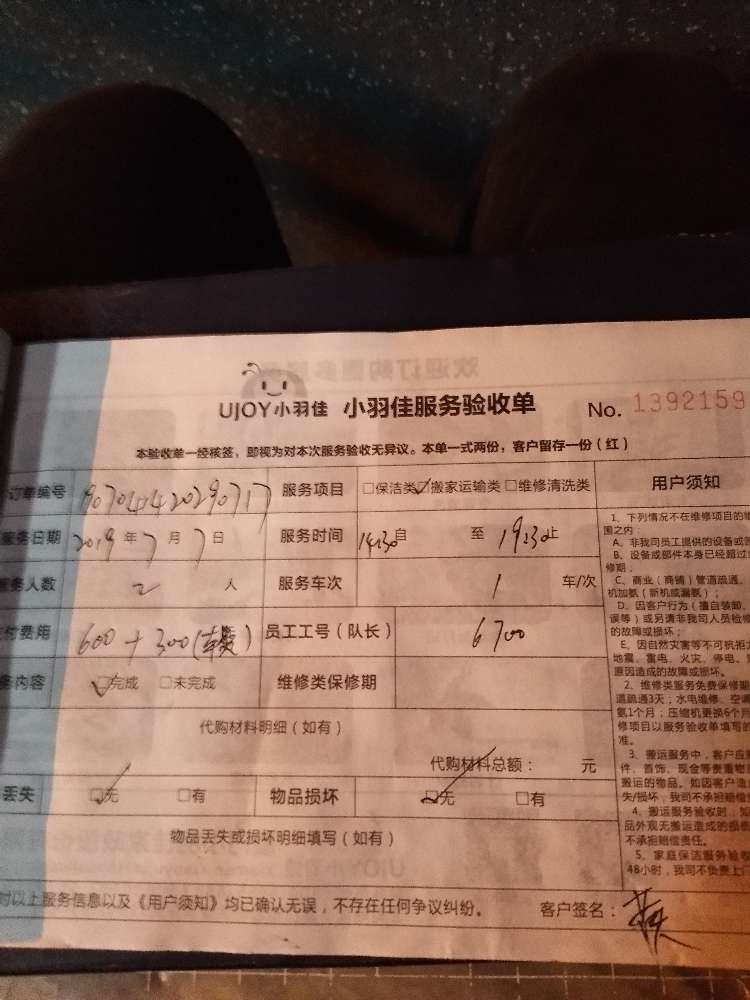 UJOY小羽佳 小羽佳服务验收单 No. 1392159
本验收单一经核签，即视为对本次服务验收无异议。本单一式两份，客户留存一份（红）
订单编号 服务项目 □保洁类 ☑搬家运输类 □维修清洗类 用户须知
服务日期 2019年7月7日 服务时间 14:30自 至 19:30止
服务人数 2 人 服务车次 1 车/次
付费用 600+300(车费) 员工工号（队长） 6700
务内容 ☑完成 □未完成 维修类保修期
代购材料明细（如有）
代购材料总额： 元
丢失 ☑无 □有 物品损坏 ☑无 □有
物品丢失或损坏明细填写（如有）
对以上服务信息以及《用户须知》均已确认无误，不存在任何争议纠纷。 客户签名：
1、下列情况不在维修项目的维
围之内：
A、非我司员工提供的设备或
B、设备或部件本身已经超过
修期；
C、商业（商铺）管道疏通、
机加氨（新机或漏氨）；
D、因客户行为（擅自装卸、
误等）或另请非我司人员检修
的故障或损坏；
E、因自然灾害等不可抗拒
地震、雷电、火灾、停电、
原因造成的故障或损坏。
2、维修类服务免费保修期
道疏通3天；水电维修、空调
氨1个月；压缩机更换6个月
修项目以服务验收单填写的
准。
3、搬运服务中，客户应
件、首饰、现金等贵重物
搬运的物品。如因客户
失/损坏，我司不承担赔偿
4、搬运服务验收时，如
品外观无搬运造成的损
不承担赔偿责任。
5、家庭保洁服务验收
48小时，我司不负责上门